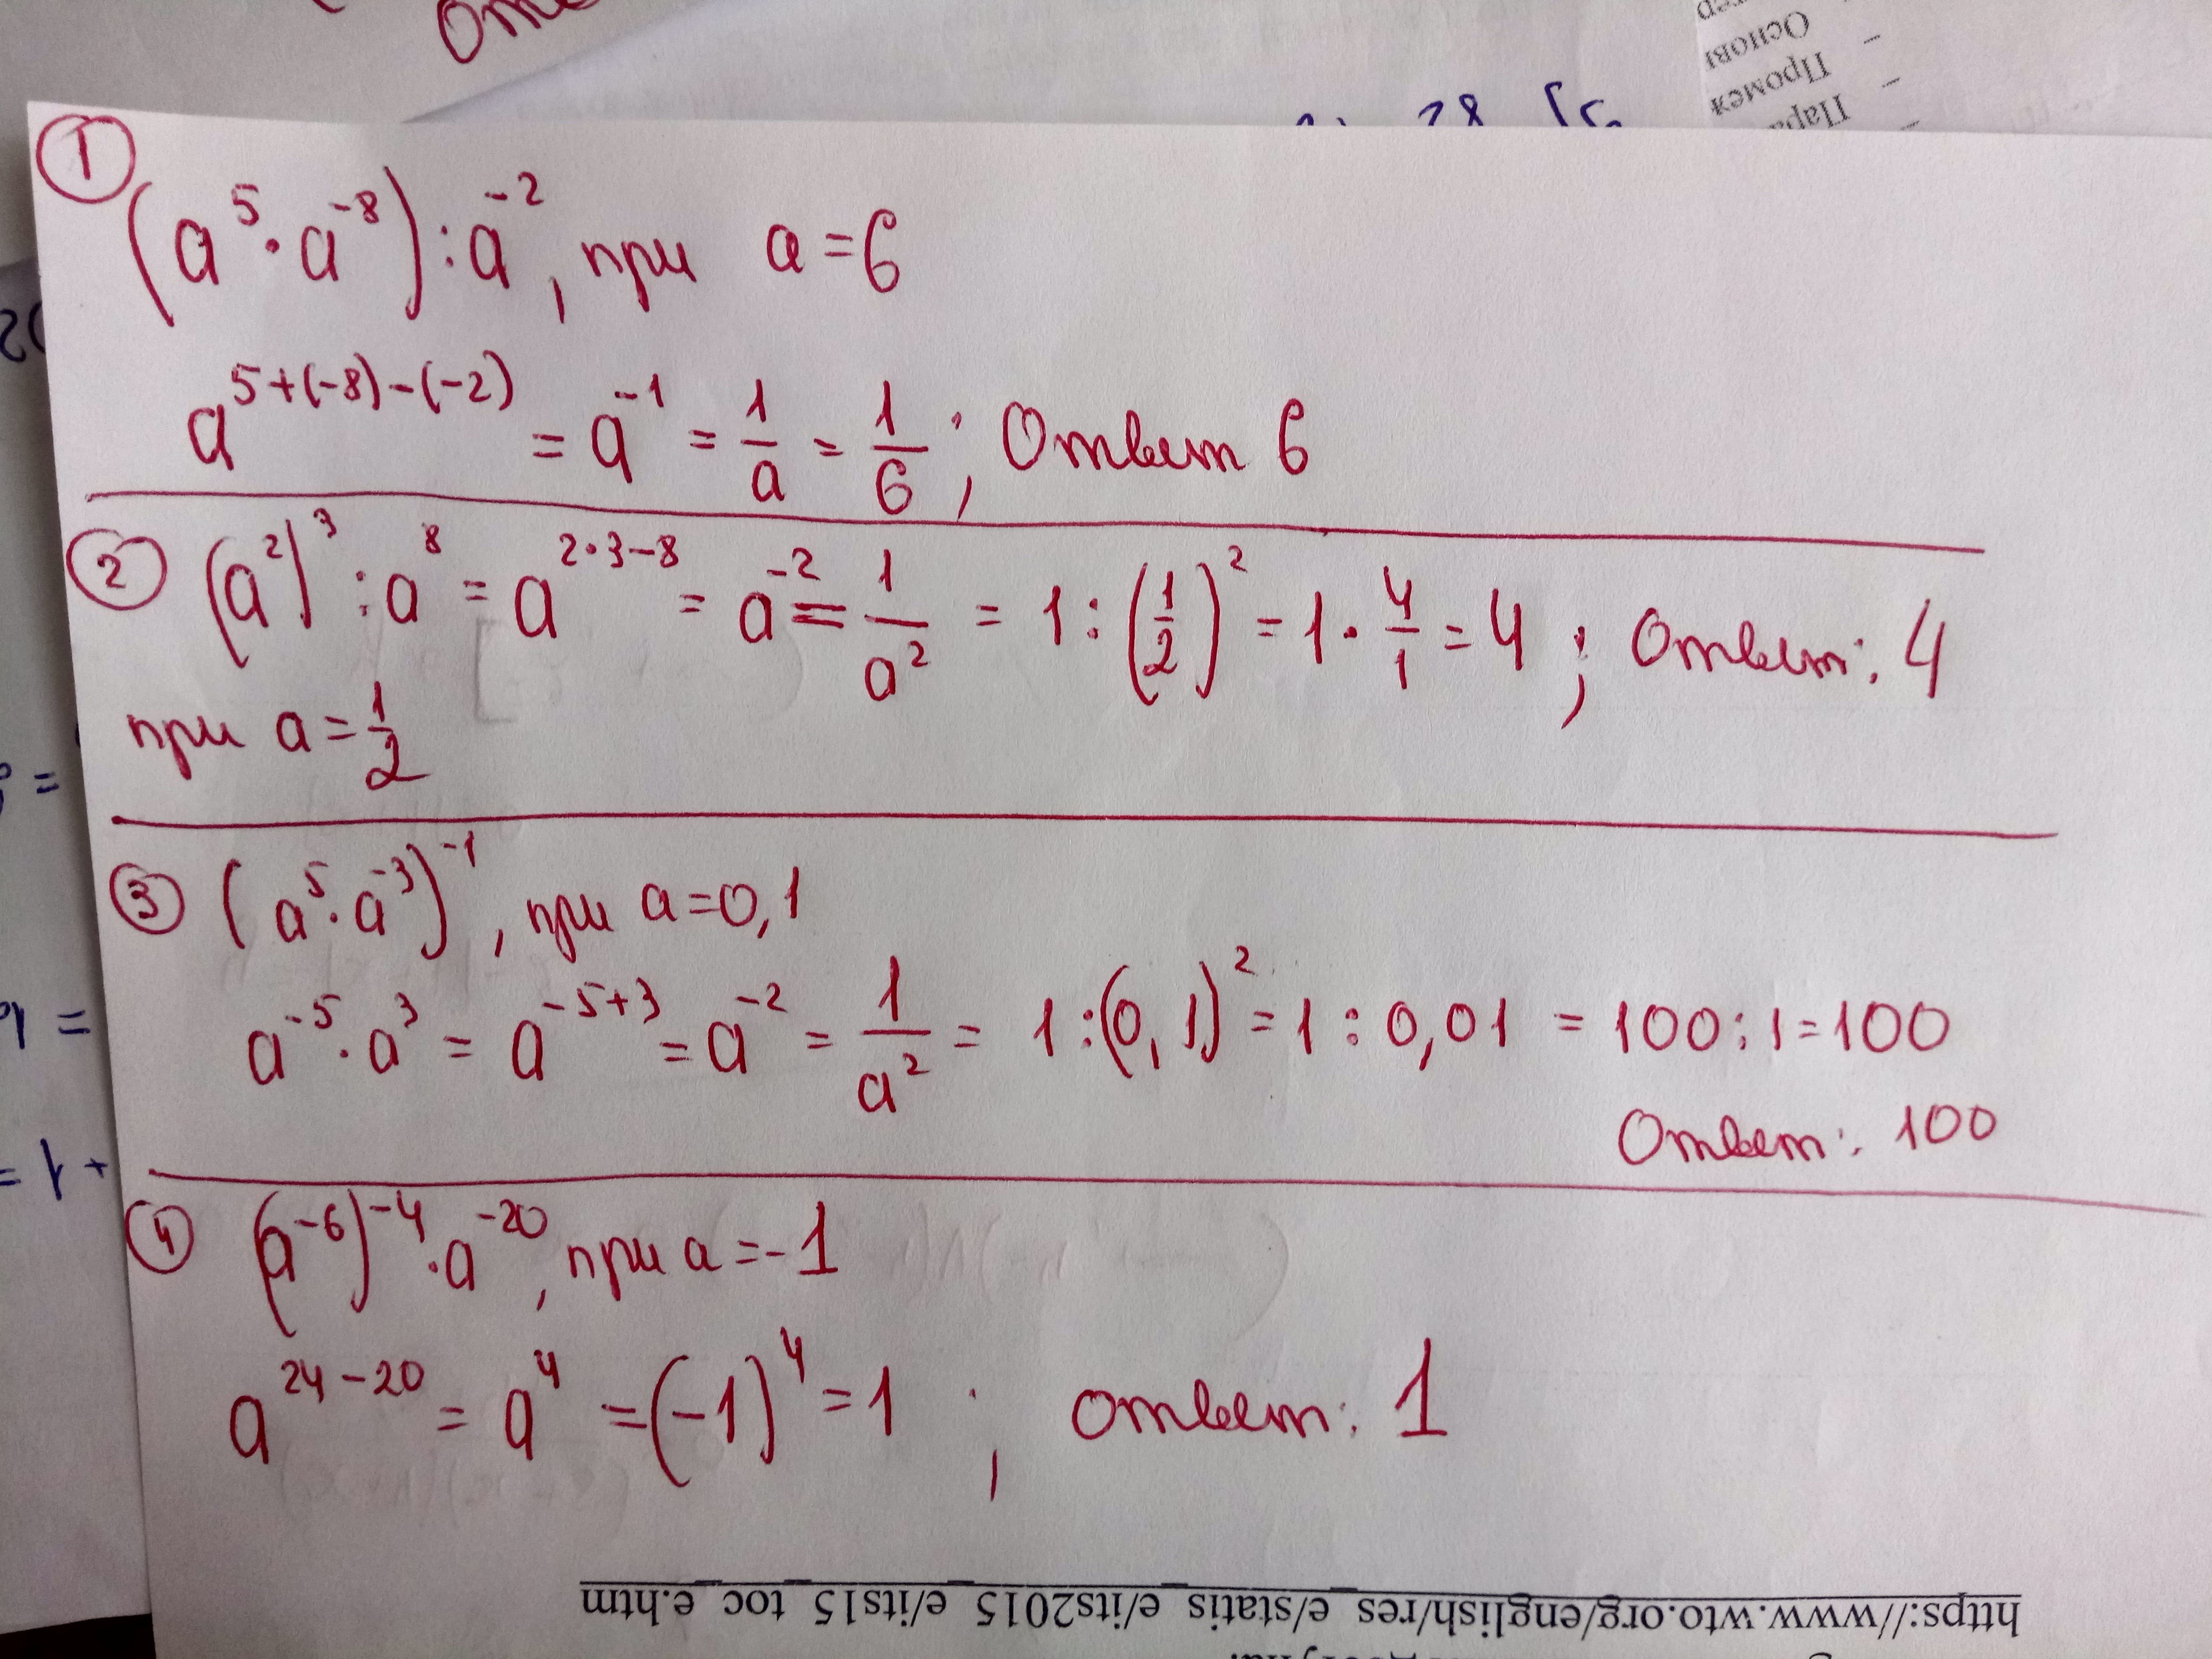 Осново
Промеж
Пара
①
(a⁵ · a⁻⁸) : a⁻², при a = 6
a⁵⁺⁽⁻⁸⁾⁻⁽⁻²⁾ = a⁻¹ = 1/a = 1/6 ; Ответ 6
② (a²)³ : a⁸ = a²·³⁻⁸ = a⁻² = 1/a² = 1 : (1/2)² = 1 · 4/1 = 4 ; Ответ: 4
при a = 1/2
③ (a⁵ · a⁻³)⁻¹, при a = 0,1
a⁻⁵ · a³ = a⁻⁵⁺³ = a⁻² = 1/a² = 1 : (0,1)² = 1 : 0,01 = 100 : 1 = 100
Ответ: 100
④ (a⁻⁶)⁻⁴ · a⁻²⁰, при a = -1
a²⁴⁻²⁰ = a⁴ = (-1)⁴ = 1 ; ответ: 1
https://www.wto.org/english/res_e/statis_e/its2015_e/its15_toc_e.htm